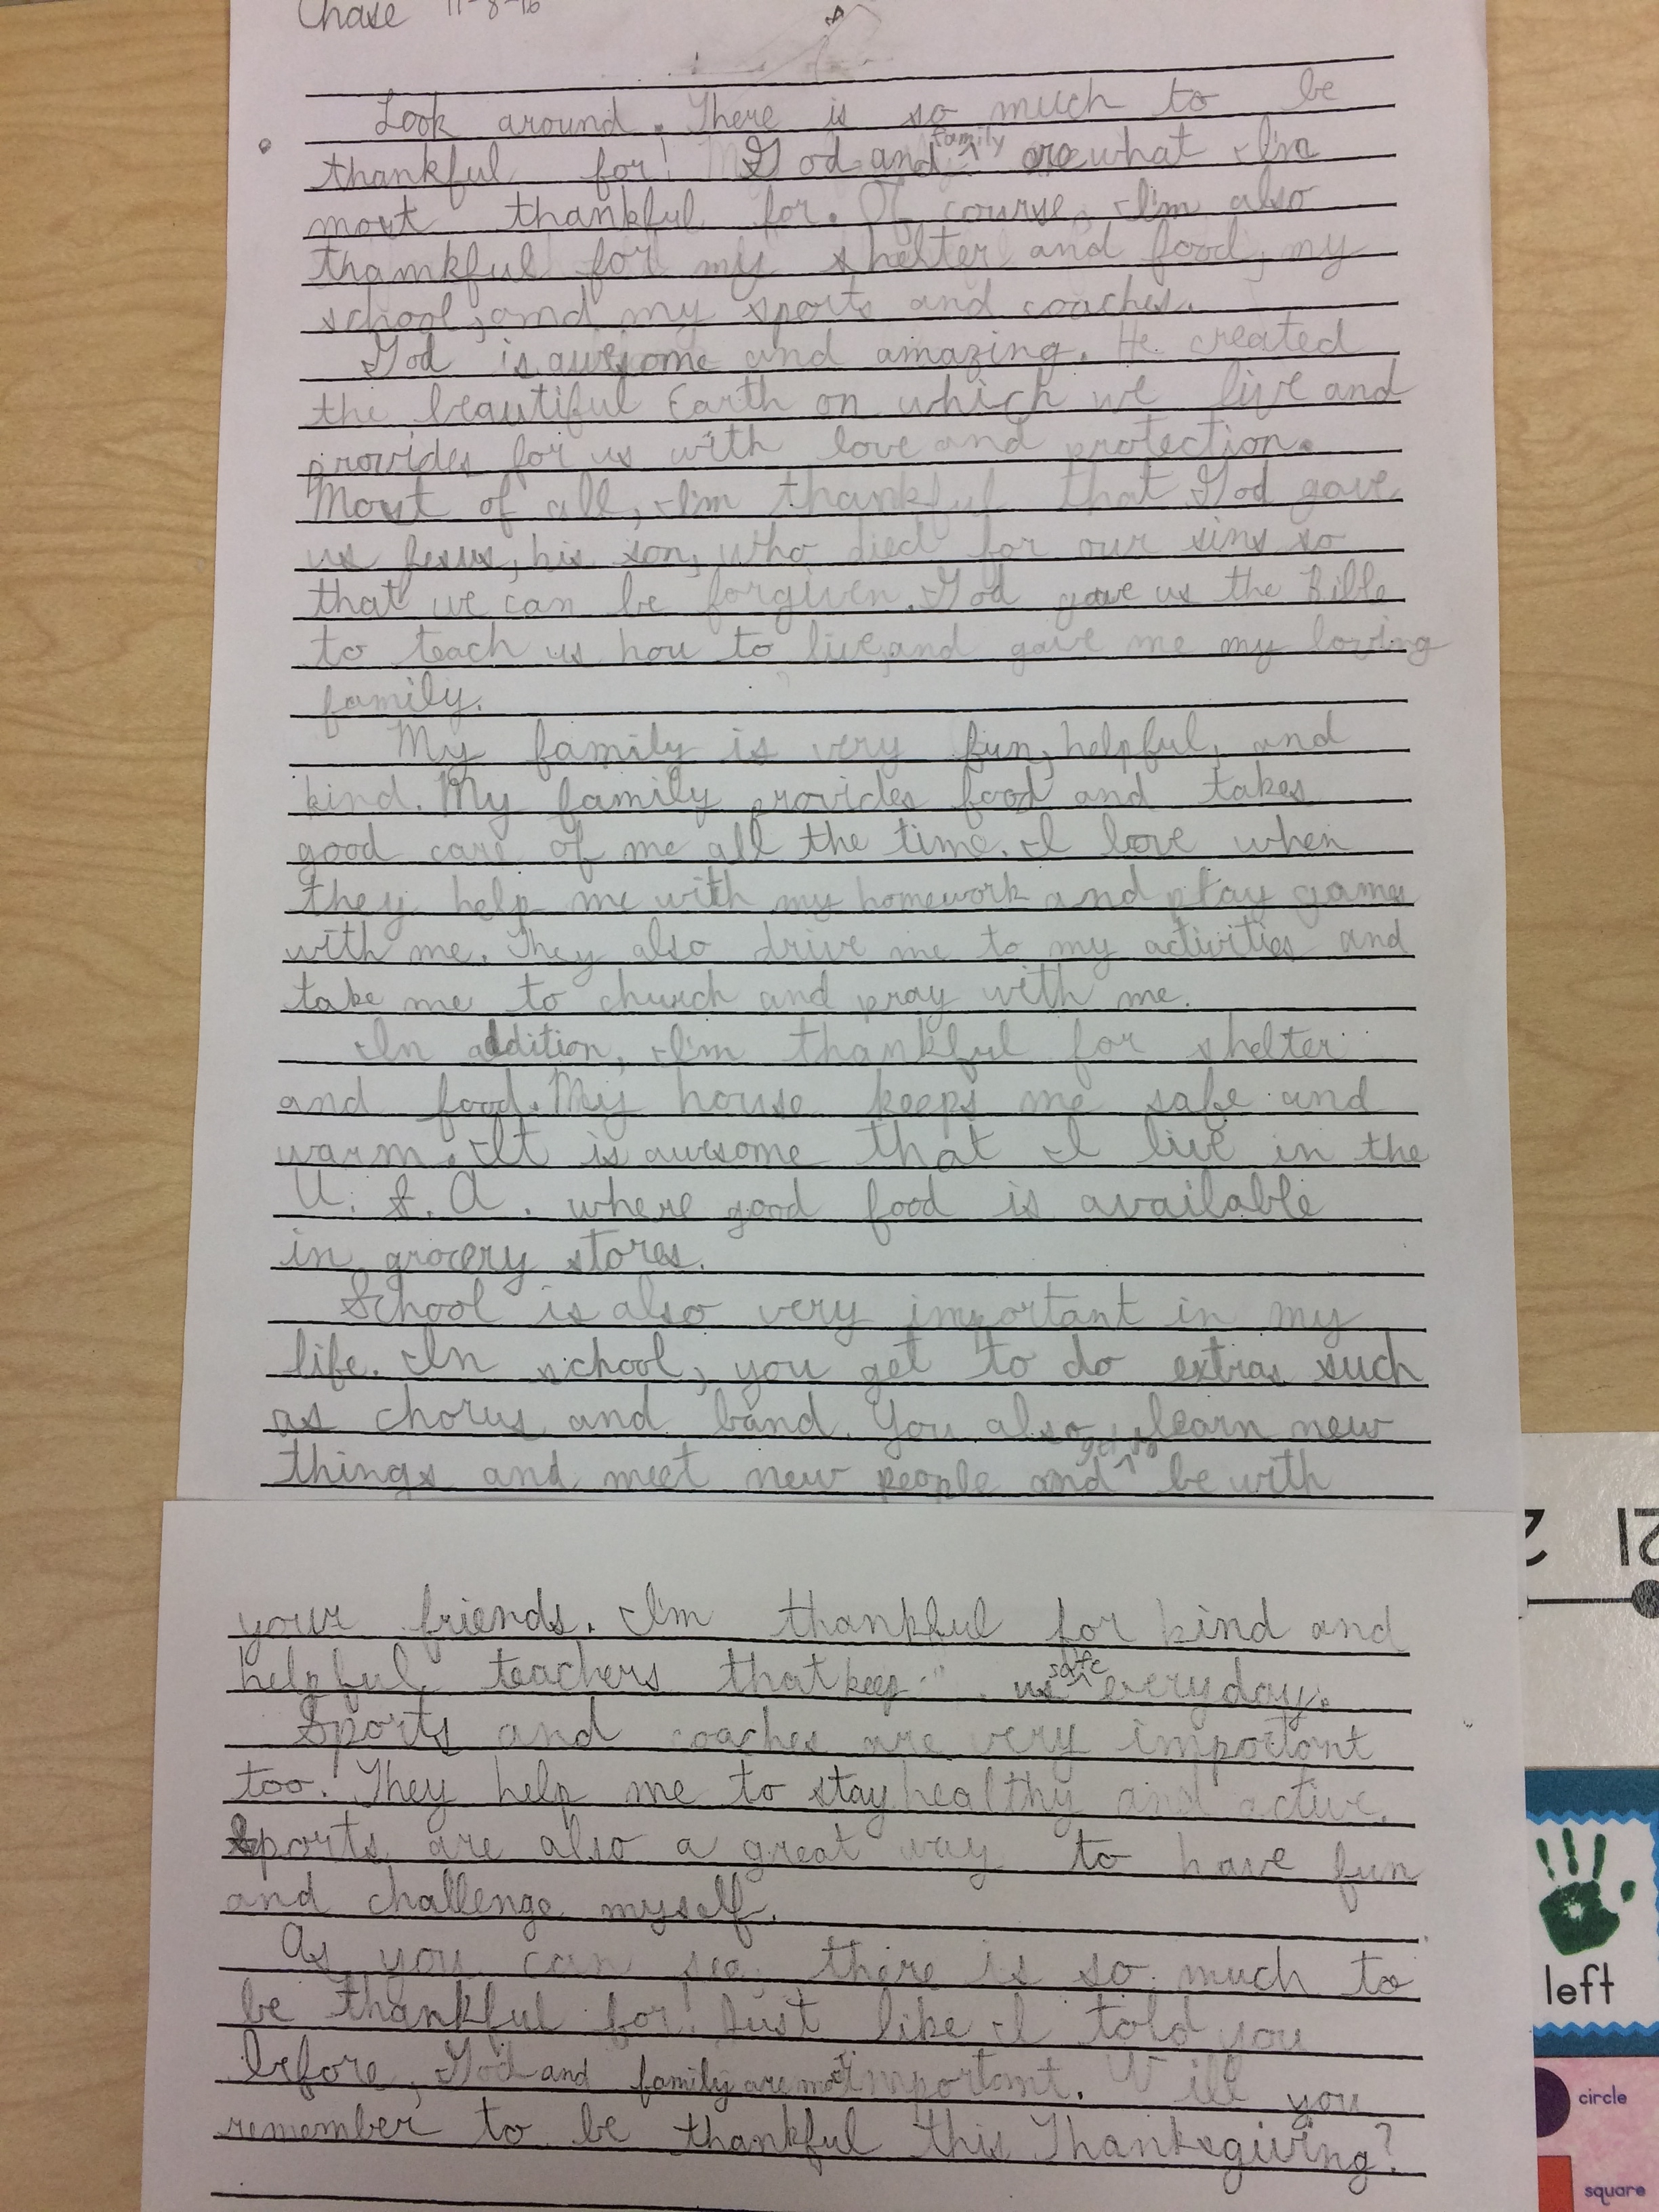 Chase 11-8-16
Look around. There is so much to be
thankful for! God and family are what I'm
most thankful for. Of course, I'm also
thamkful for my shelter and food, my
school, amd my sports and coaches.
God is awesome and amazing. He created
the beautiful Earth on which we live and
provides for us with love and protection.
Most of all, I'm thankful that God gave
us Jesus, his son, who died for our sins so
that we can be forgiven. God gave us the Bible
to teach us how to live, and gave me my loving
family.
My family is very fun, helpful, and
kind. My family provides food and takes
good care of me all the time. I love when
they help me with my homework and play games
with me. They also drive me to my activities and
take me to church and pray with me.
In addition, I'm thankful for shelter
and food. My house keeps me safe and
warm. It is awsome that I live in the
U. S. A. where good food is available
in grocery stores.
School is also very important in my
life. In school, you get to do extras such
as chorus and band. You also learn new
things and meet new people and get to be with
your friends. I'm thankful for kind and
helpful teachers that keep us safe everyday.
Sports and coaches are very important
too! They help me to stay healthy and active.
Sports are also a great way to have fun
and challenge myself.
As you can see, there is so much to
be thankful for! Just like I told you
before, God and family are most important. Will you
remember to be thankful this Thanksgiving?
21
left
circle
square